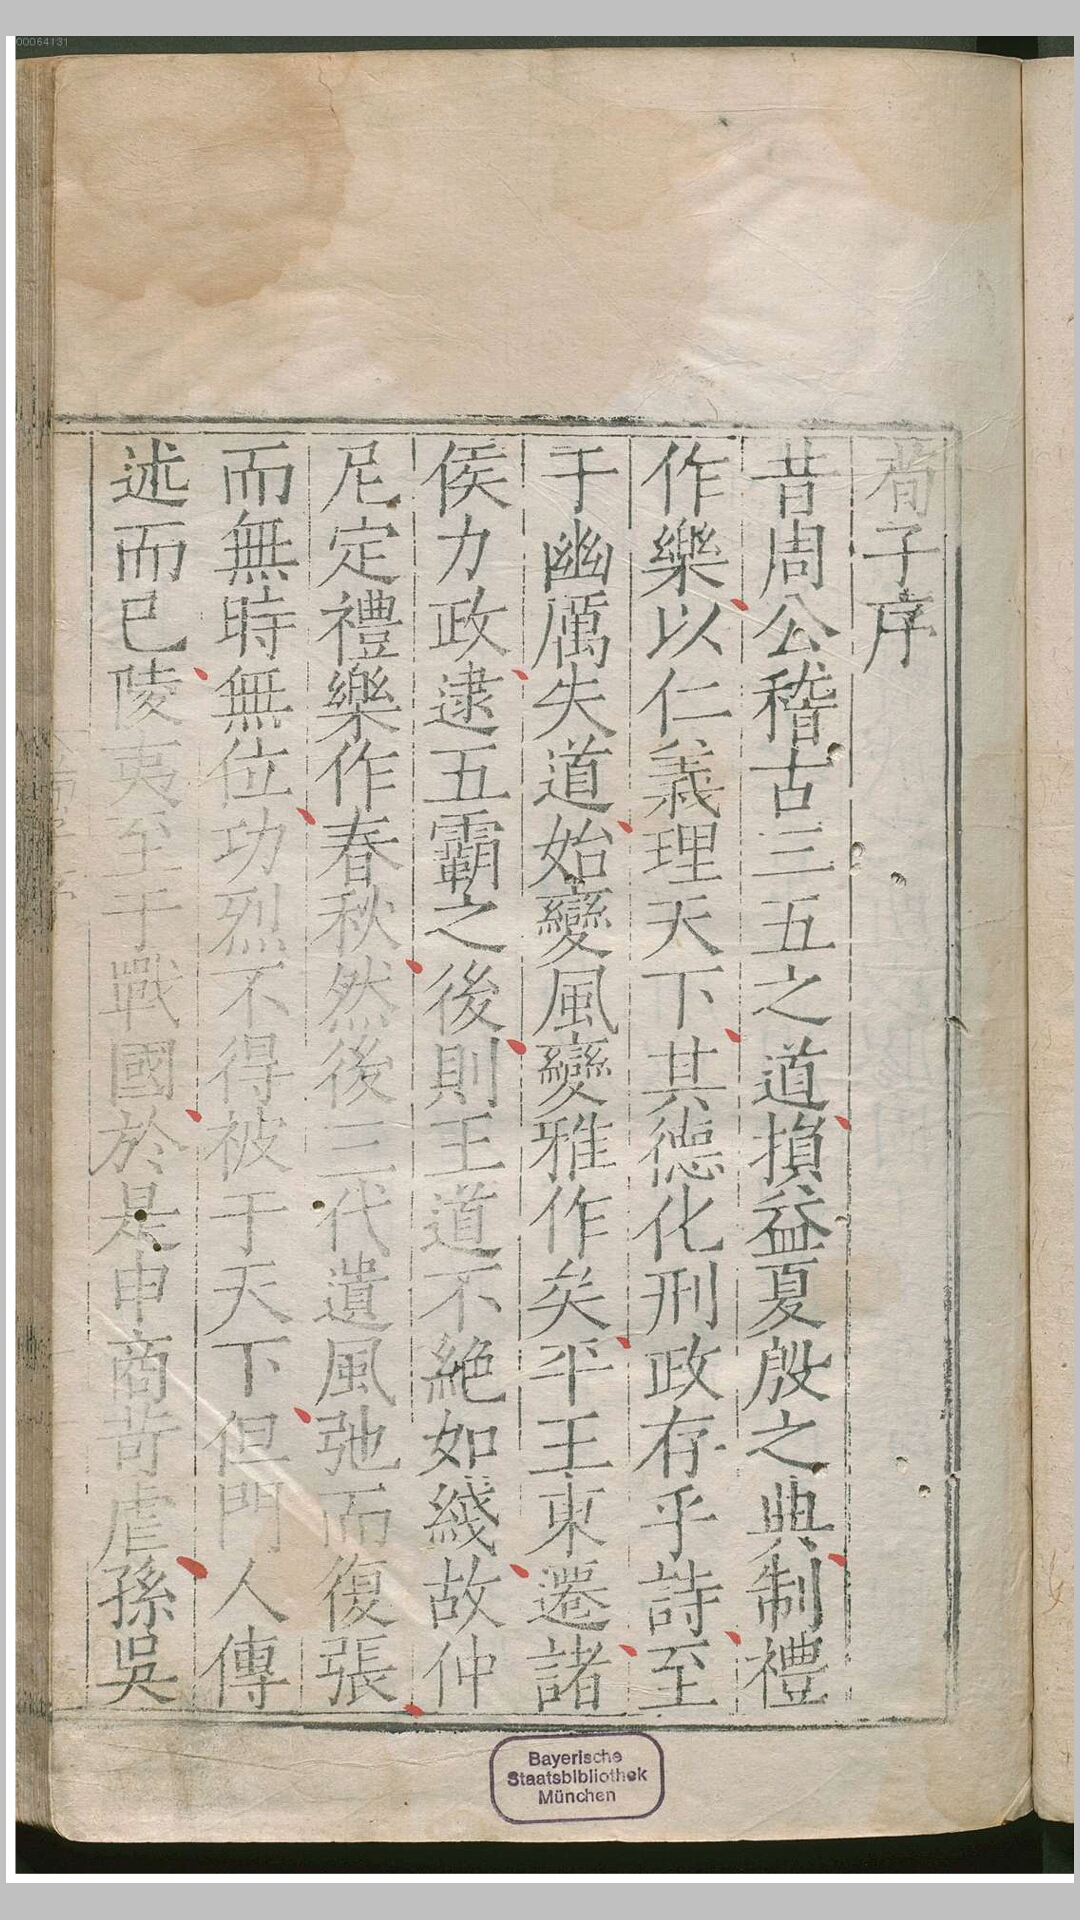 00064131
荀子序
昔周公稽古三五之道損益夏殷之典制禮
作樂以仁義理天下其德化刑政存乎詩至
于幽厲失道始變風變雅作矣平王東遷諸
侯力政逮五霸之後則王道不絶如綫故仲
尼定禮樂作春秋然後三代遺風弛而復張
而無時無位功烈不得被于天下但門人傳
述而已陵夷至于戰國於是申商苛虐孫吳
Bayerische
Staatsbibliothek
München